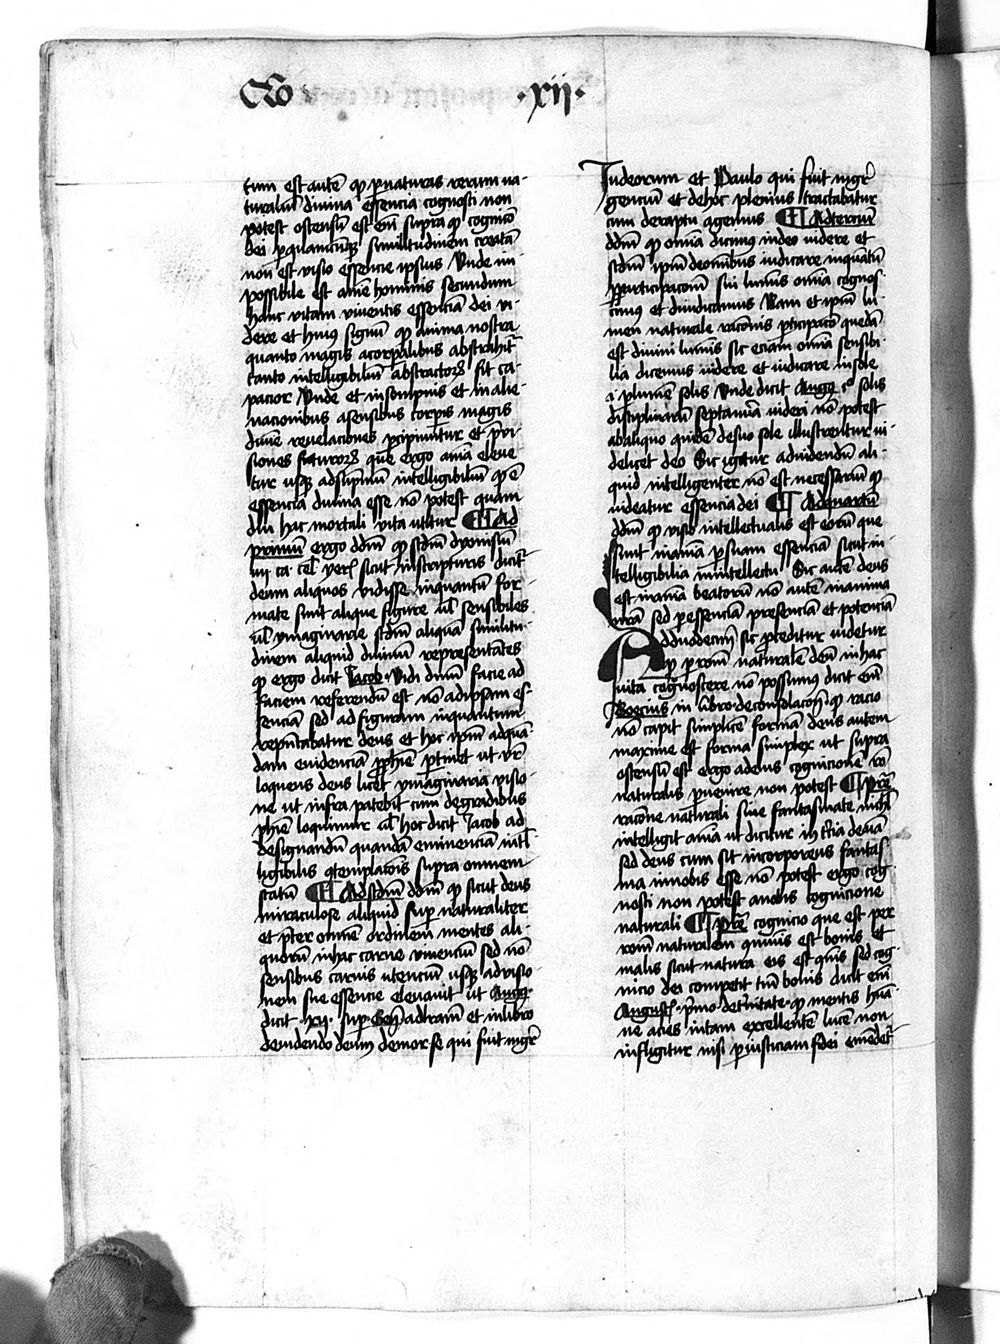 Qo xij
tum est autē qꝫ p naturas rerum na-
turaliū divina essencia cognosci non
potest ostensū est em̄ supra qꝫ cognicō
dei p quamcūqꝫ similitudinem creatā
non est visio essencie ipsius Unde im-
possibile est aīne hominis secundum
hanc vitam viventis essenciā dei vi-
dere et huius signū qꝫ anima nostra
quanto magis acorpalibus abstrahitᷣ
tanto intelligibiliū abstractoꝝ fit ca-
pacior Unde et insompnis et in alie-
nacionibus asensibus corpis magis
divīe revelaciones pcipiuntur et p̄vi-
siones futuroꝝ que ergo aīa eleve
tur usqꝫ adsupmū intelligibiliū qꝫ ē
essencia divina esse nō potest quam
diu hac mortali vita utitur ¶ Ad
primū ergo ddm̄ qꝫ scdm̄ dyonisiū
iiij ca cel yerͤ sicut inscripturis dicitᷣ
deum aliquos vidisse inquantū for
mate sunt alique figure ul sensibiles
ul ymaginarie scdm̄ aliquā similitu-
dinem aliquid divinū representātes
qꝫ ergo dicit Jacob Vidi dnm̄ facie ad
faciem referendū est nō adipsam es-
senciā sed ad figuram inquantum
rep̄ntabatur deus et hoc ipm̄ adquā-
dam evidenciā pphīe ptinet ut vrͦ
loquens deus licet ymaginaria visio-
ne ut infra patebit cum degradibus
phīe loquimur ul hoc dicit Jacob ad
designandū quandā eminenciā intel
ligibilis qtemplacōis supra omnem
statū ¶ Ad scdm̄ ddm̄ qꝫ sicut deus
miraculose aliquid supᷣ naturaliter
et pter omnē ordinem mentes ali-
quorū inhac carne vivenciū sed nō
sensibus carnis utenciū usqꝫ advisio-
nem sue essencie elevavit ut Augꝰ
dicit xij supᷣ Gen̄ adlram̄ et inlibro
devidendo deum demor se qui fuit mgrͬ
Judeorum et Paulo qui fuit mgrͬ
genciū et dehoc plenius tractabatur
cum deraptu agemus ¶ Adterciū
ddm̄ qꝫ omīa dicimus indeo videre et
scdm̄ ipm̄ deomībus iudicare inquātū
p participacōm sui lumīs omīa cognos-
cimus et diiudicamus Nam et ipm̄ lu
men naturale racōnis pticipacō quedā
est divini lumīs sic eciam omīa sensibi-
lia dicimus videre et iudicare insole
i plumē solis Unde dicit Augꝰ iᵒ solis
disciplinarū septamīa videri nō potest
abaliquo quidē desuo sole illustrentur vi-
delicet deo Sic igitur advidendū ali-
quid intelligenter nō est necessariū qꝫ
videatur essencia dei ¶ Adquartū
ddm̄ qꝫ visio intellectualis est eorū que
sunt inanīa p suam essenciā sicut in-
telligibilia inintellectu Sic autē deus
est inanīa beatorū nō autē inanima
nrā sed p essenciā presenciā et potenciā
Adduodecim̄ sic pceditur videtur
qꝫ p rōm naturalē deū in hac
vita cognoscere nō possumus dicit em̄
Boecius in libro deconsolacōn̄ qꝫ racio
nō capit simplicē formā deus autem
maxime est forma simplex ut supra
ostensū est ergo adeius cognicionē rō
naturalis pvenire non potest ¶ Prē
racōne naturali sine fantasmate nichil
intelligit anīa ut dicitur in tercia deaīa
sed deus cum sit incorporeus fantas
ma innobis esse nō potest ergo cog-
nosci non potest anobis cognicione
naturali ¶ Prē cognicio que est per
rōm naturalem quīmis est bonis et
malis sicut natura eis est qīnis sed cog-
nicio dei competit tm̄ bonis dicit em̄
Augusͭ pͥmo detͥnitate qꝫ mentis hūā-
ne acies intam excellentē lucē non
infligitur nisi p iusticiam fidei emēdetᷣ